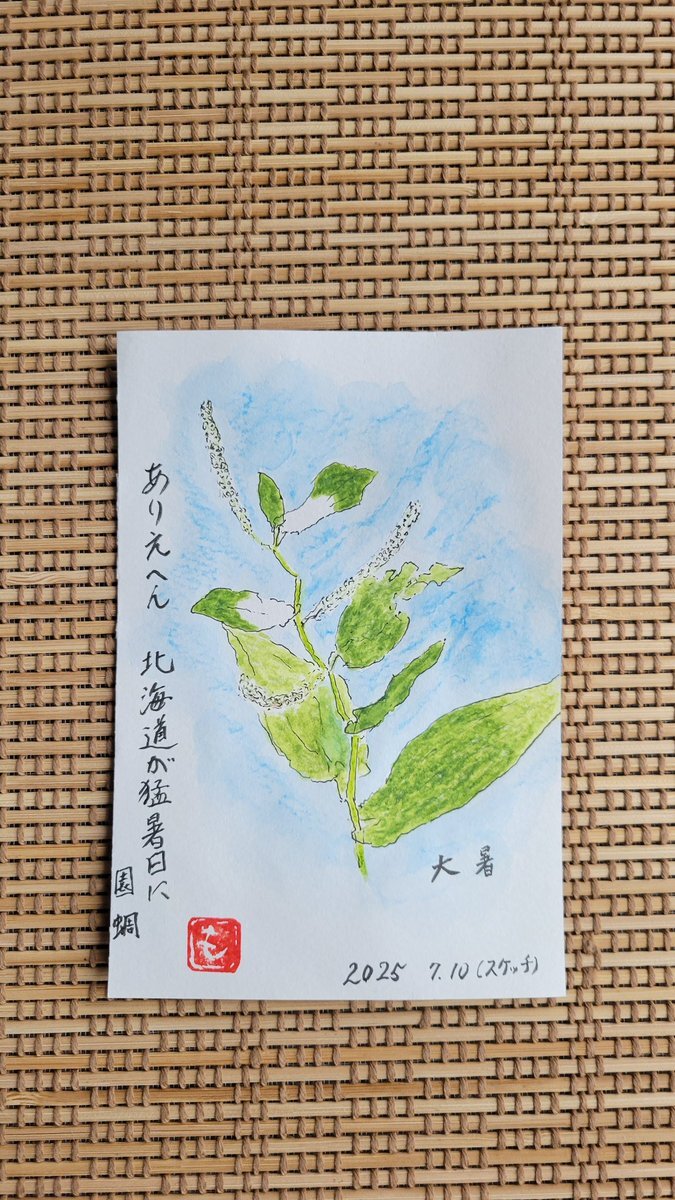 ありえへん 北海道が猛暑日に
園蜩
大暑
2025 7.10(スケッチ)